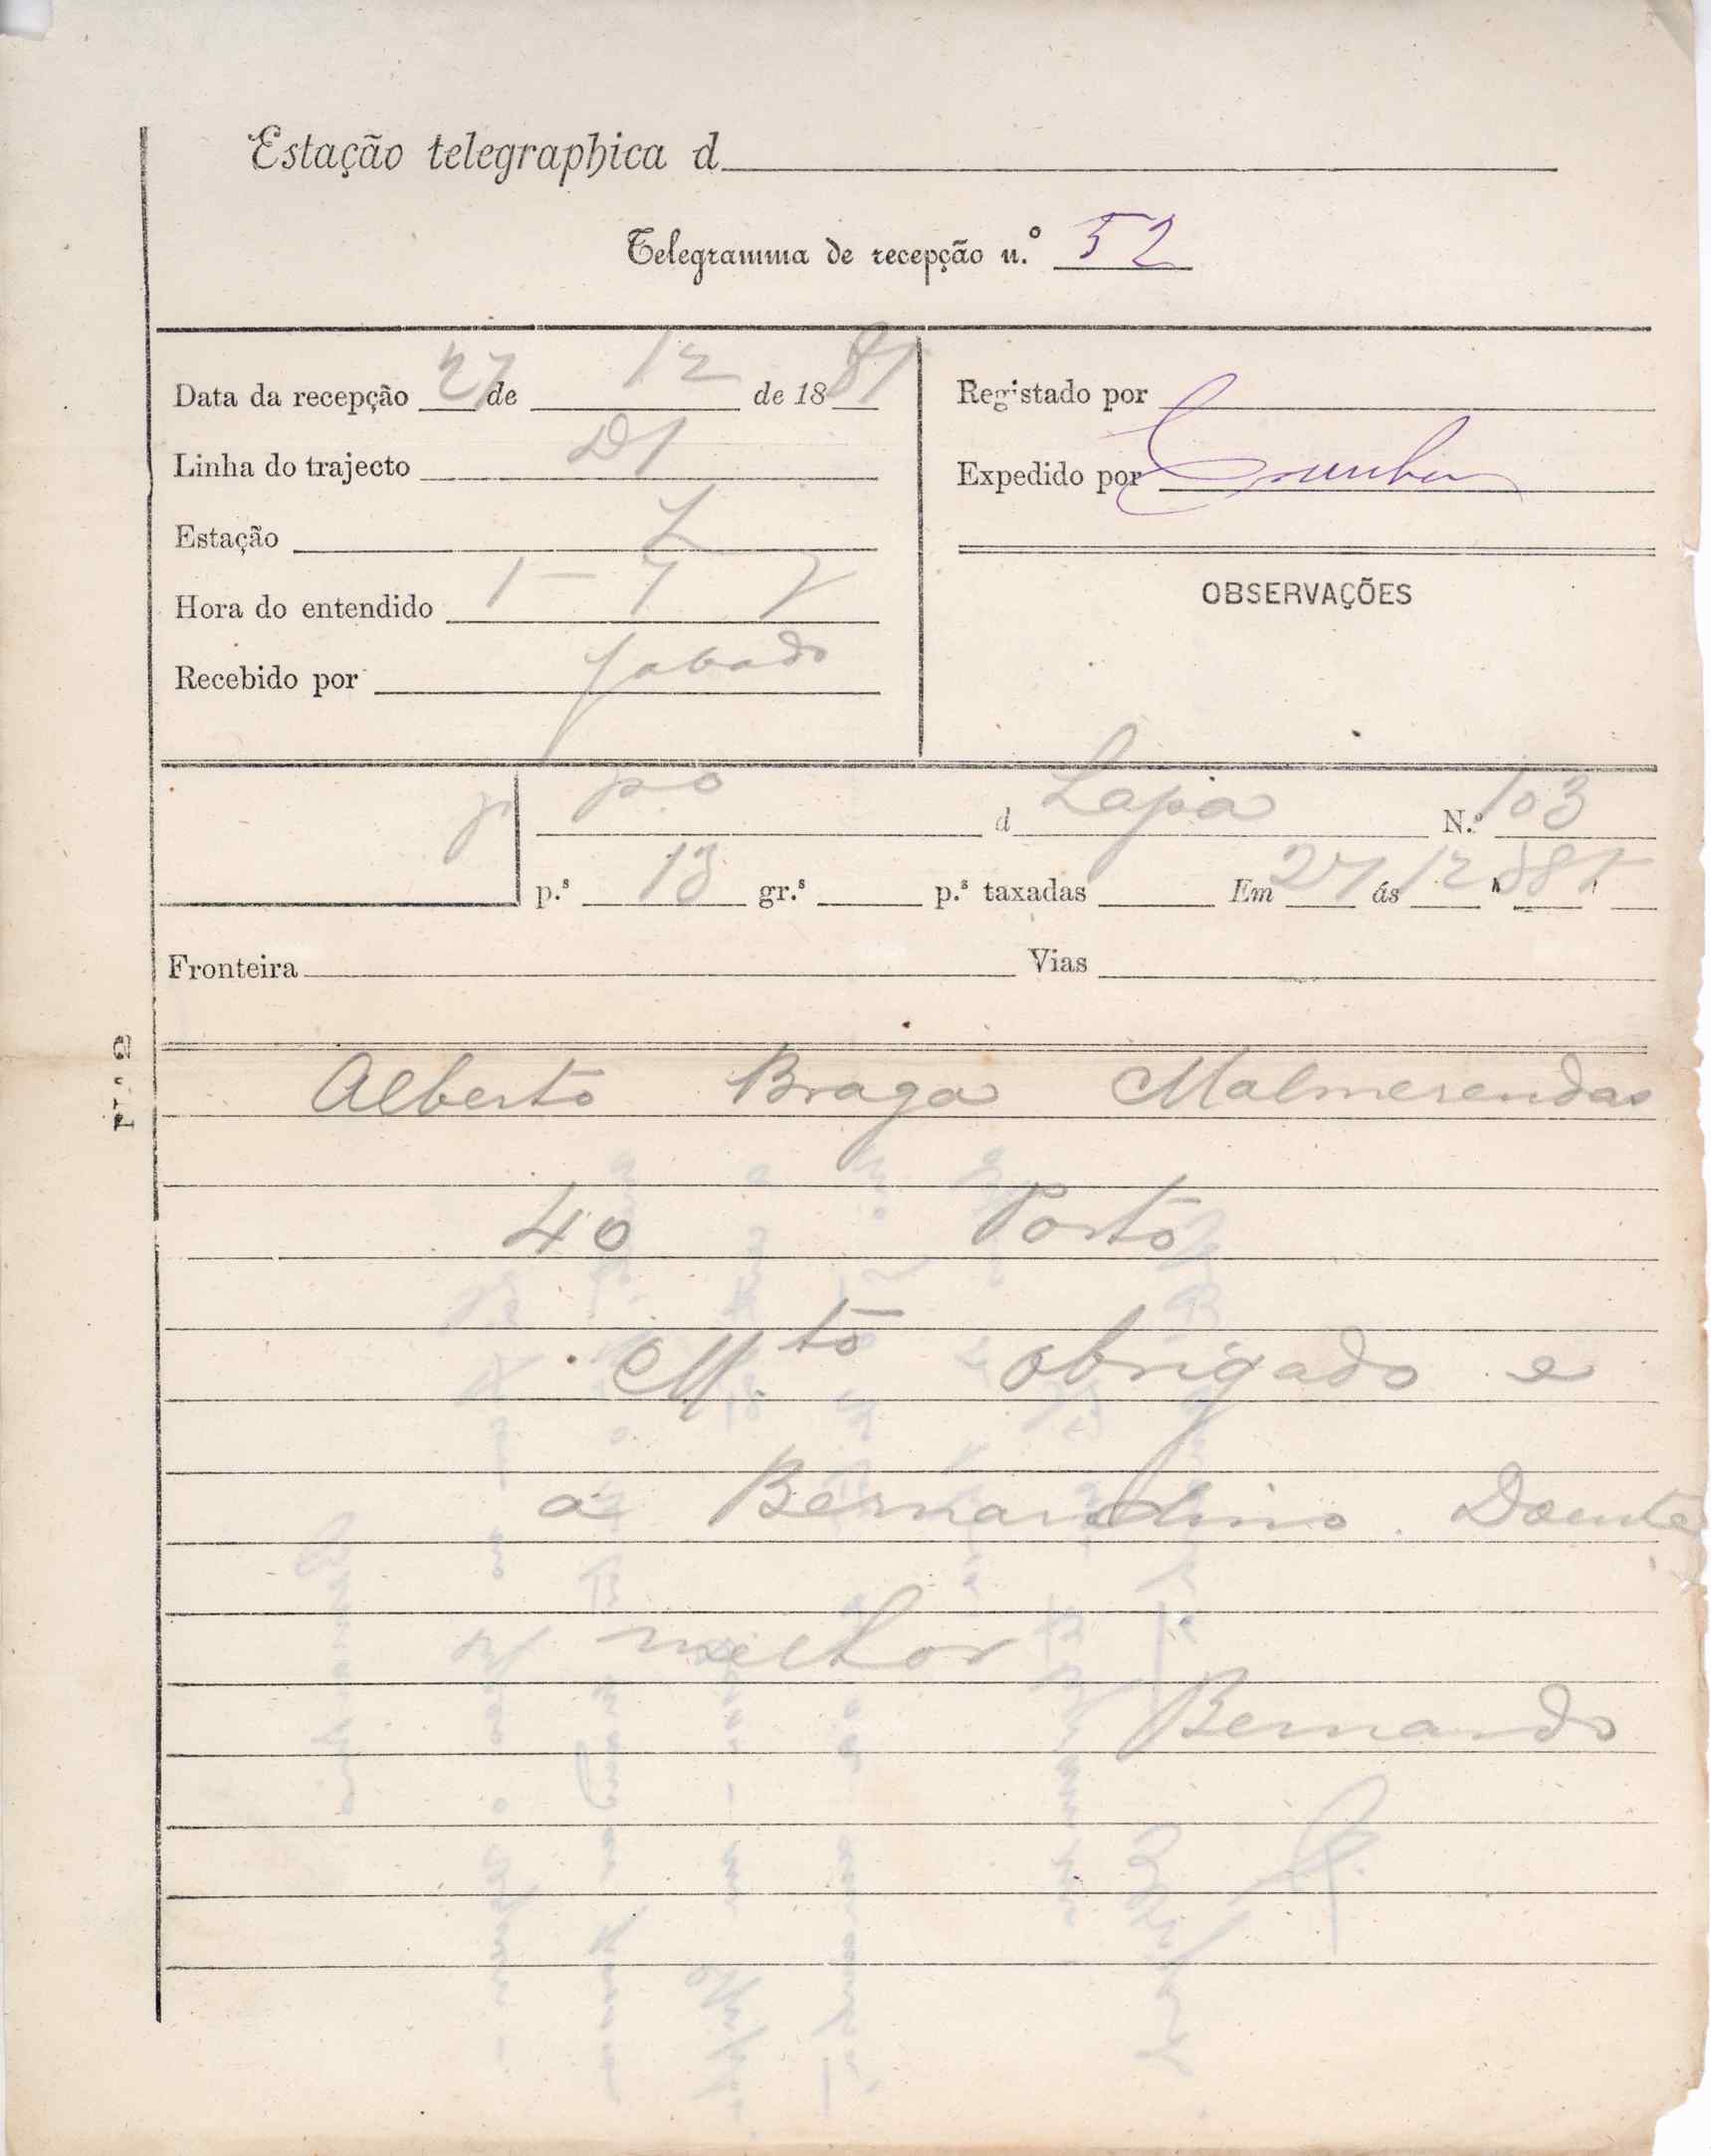 Estação telegraphica d
Telegramma de recepção n.º 52
Data da recepção 27 de 12 de 1881
Linha do trajecto D1
Estação L
Hora do entendido 1 - 7
Recebido por
Registado por
Expedido por Cunha
OBSERVAÇÕES
po d Lapa N.º 103
p.s 13 gr.s p.s taxadas Em 27 ás 12 h
Fronteira Vias
N.º 2
Alberto Braga Malmerendas
40 Porto
M.to obrigado e
a Bernardino. Doente
melhor
Bernardo